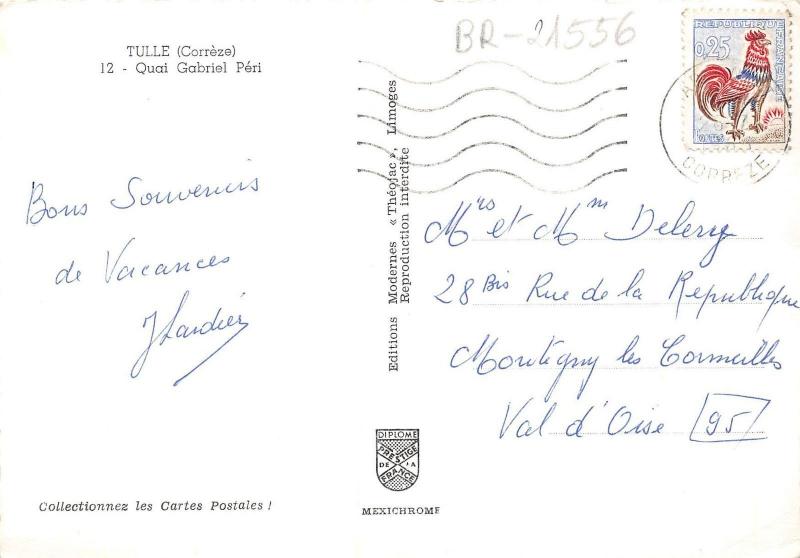 BR-21556
TULLE (Corrèze)
12 - Quai Gabriel Péri
REPUBLIQUE FRANÇAISE
0,25
POSTES
CORREZE
Bons Souvenirs
de Vacances
Editions Modernes « Théojac », Limoges
Reproduction interdite
Mrs et Mm
28 Bis Rue de la Republique
Montigny les Cormeilles
Val d'Oise 95
DIPLOME
PRESTIGE
DE LA
FRANCE
Collectionnez les Cartes Postales !
MEXICHROME